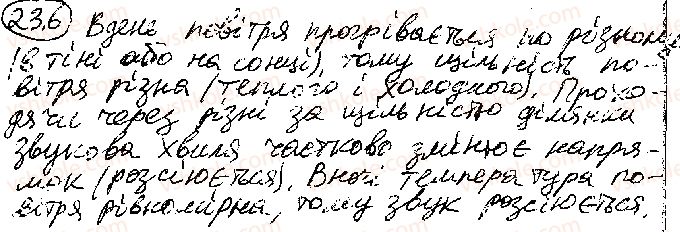 23.6 Вдень повітря прогрівається по різному
(в тіні або на сонці), тому щільність по-
вітря різна (теплого і холодного). Прохо-
дячи через різні за щільністю ділянки
звукова хвиля частково змінює напря-
мок (розсіюється). Вночі температура по-
вітря рівномірна, тому звук розсіюється.